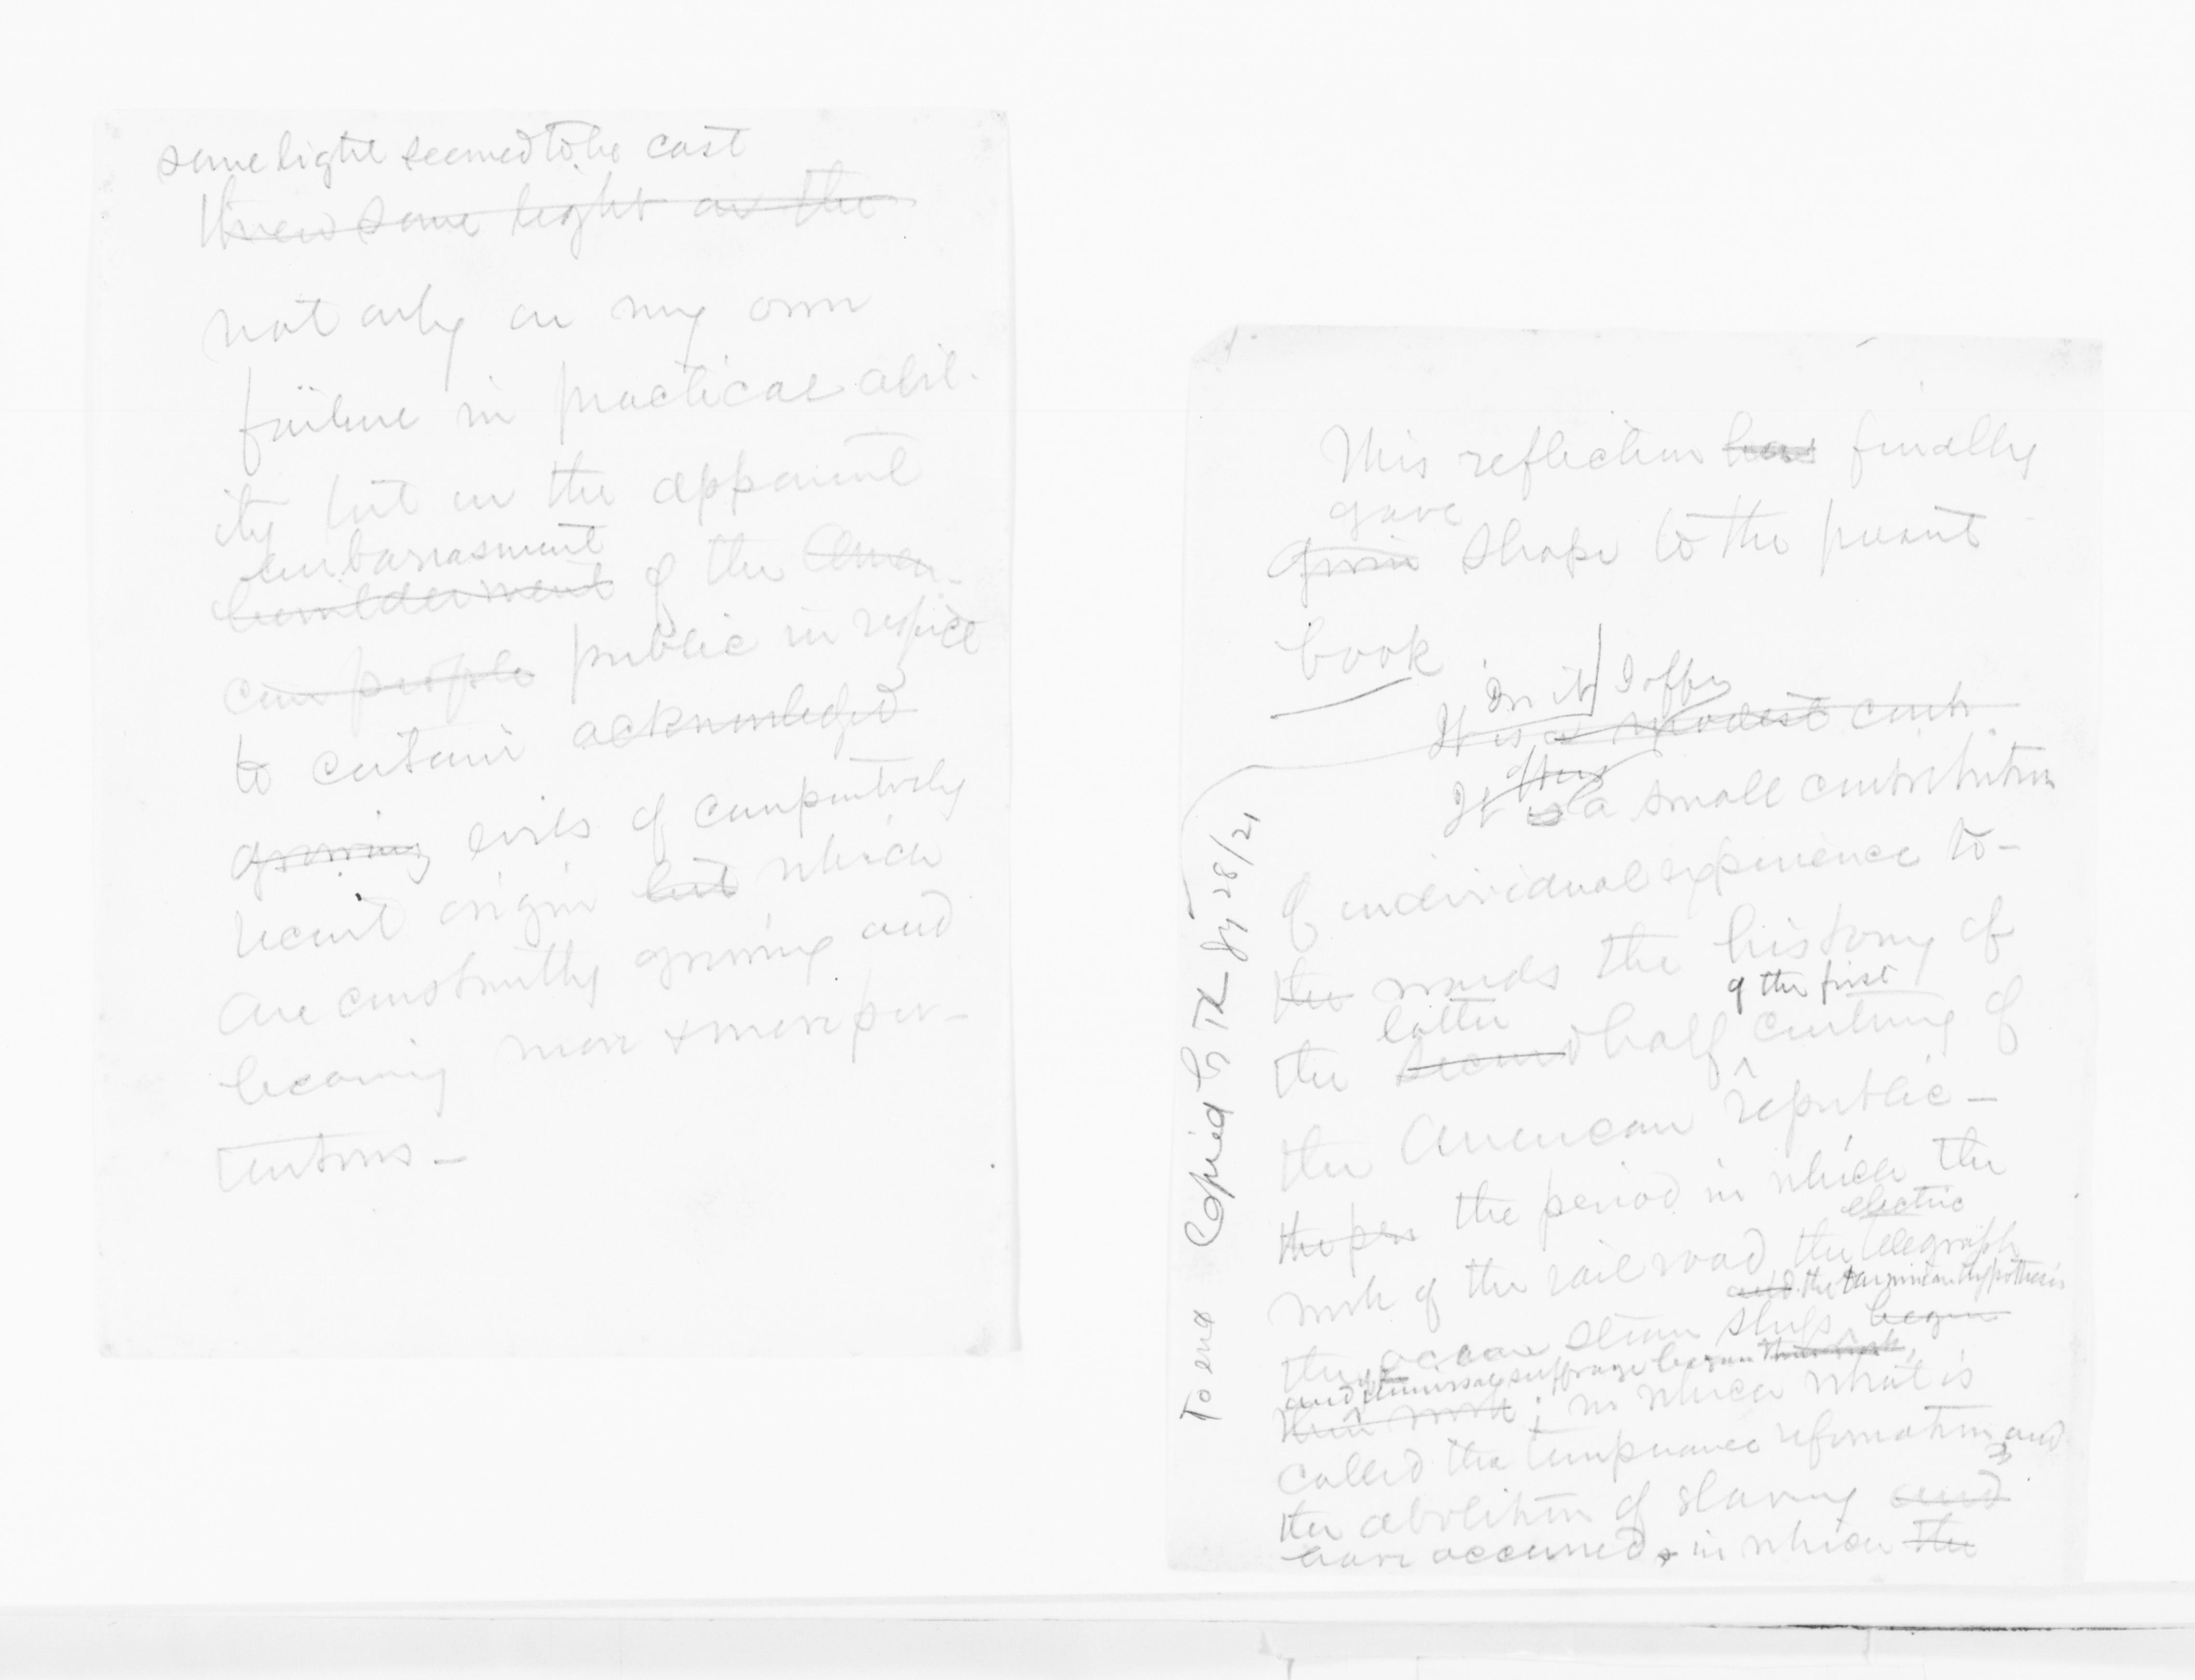 some light seemed to be cast
threw some light on the
not only on my own
failure in practical abil-
ity but on the apparent
embarrasment
bewilderment of the Ameri-
can people public in respect
to certain acknowledged
growing evils of comparatively
recent origin but which
are constantly growing and
becoming more & more por-
tentous –
This reflection has finally
gave
given shape to the present
book
In it I offer
It is a modest contr
offers
It is a small contribution
of individual experience to-
the wards the history of
of the first
latter
the second half century of
the American republic –
the per the period in which the
electric
work of the rail road the telegraph
and the Darwinian hypothesis
the ocean steam ships began
and universal suffrage began their work,
their work; in which what is
called the temperance reformation and
the abolition of slavery and
have occurred, in which the
To end Copied by TR Jy 28/21